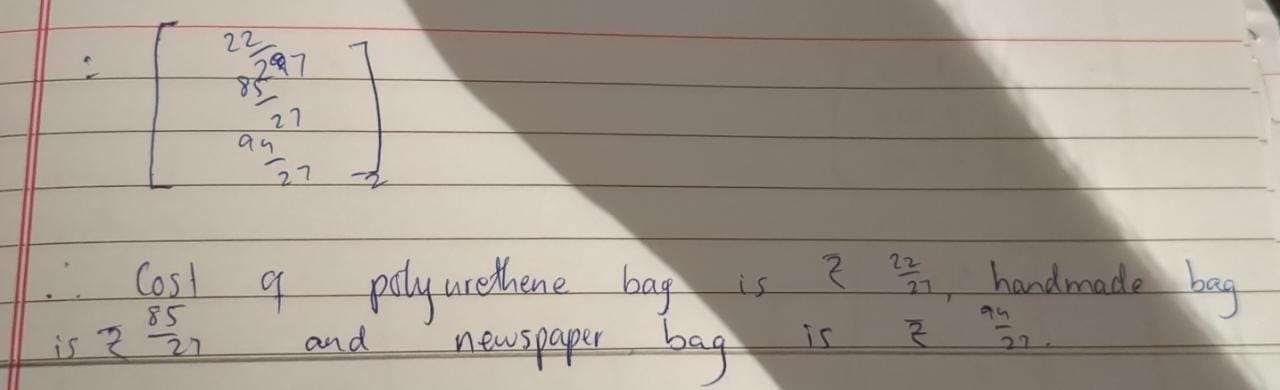 = [ 22/27
85/27
94/27 ]
∴ Cost of polyurethene bag is ₹ 22/27, handmade bag
is ₹ 85/27 and newspaper bag is ₹ 94/27.